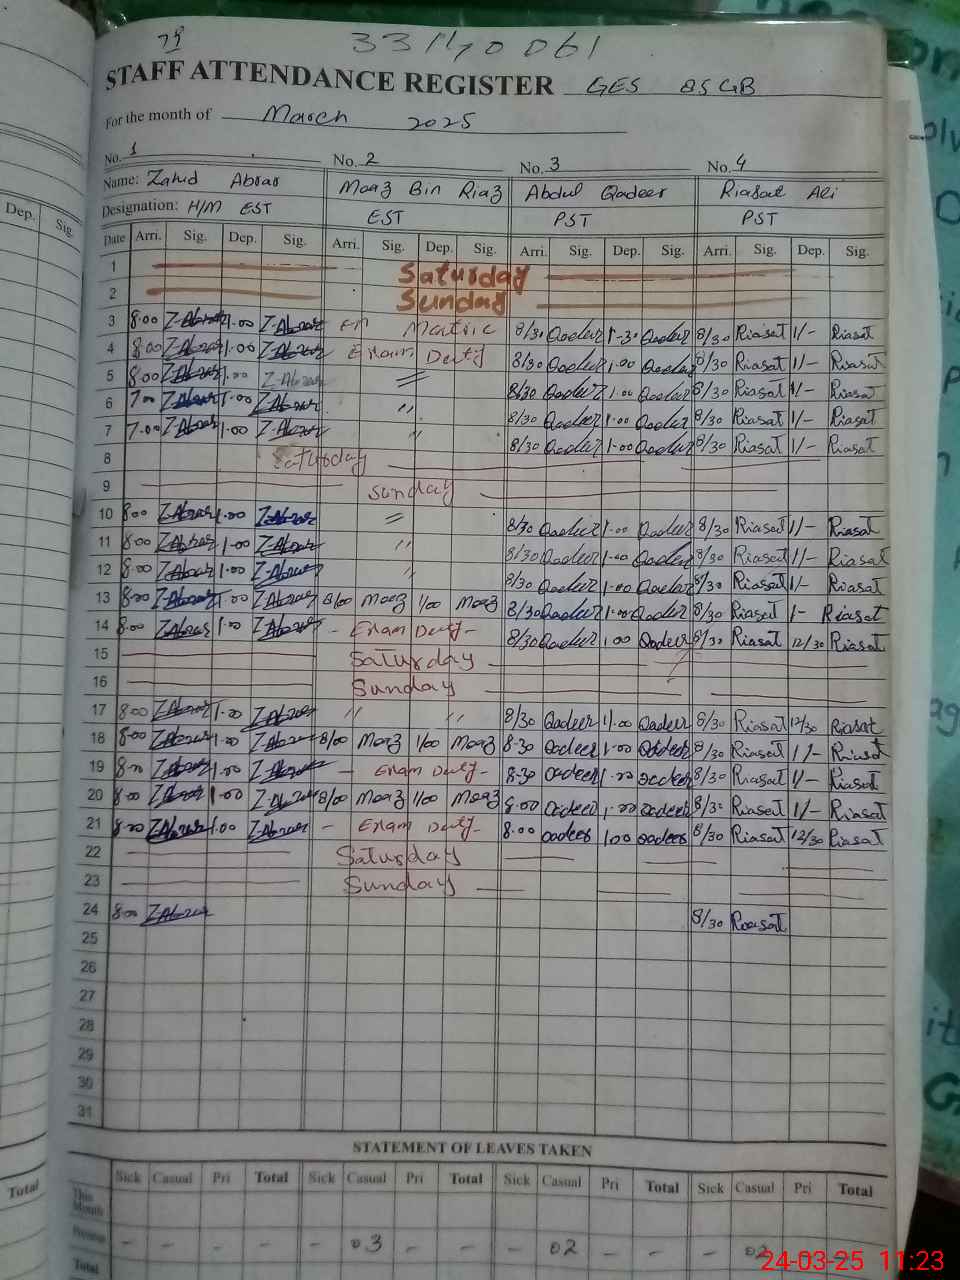 33170061
STAFF ATTENDANCE REGISTER GES 85 GB
For the month of March 2025
No. 1 No. 2 No. 3 No. 4
Name: Zahid Abrar Moaz Bin Riaz Abdul Qadeer Riasat Ali
Designation: H/M EST EST PST PST
Date Arri. Sig. Dep. Sig. Arri. Sig. Dep. Sig. Arri. Sig. Dep. Sig. Arri. Sig. Dep. Sig.
1 Saturday
2 Sunday
3 8.00 Z.Abrar 1.00 Z.Abrar Matric 8/30 Qadeer 1.30 Qadeer 8/30 Riasat 1/- Riasat
4 8.00 Z.Abrar 1.00 Z.Abrar Exam Duty 8/30 Qadeer 1.00 Qadeer 8/30 Riasat 1/- Riasat
5 8.00 Z.Abrar 1.00 Z.Abrar = 8/30 Qadeer 1.00 Qadeer 8/30 Riasat 1/- Riasat
6 7.00 Z.Abrar 1.00 Z.Abrar " 8/30 Qadeer 1.00 Qadeer 8/30 Riasat 1/- Riasat
7 7.00 Z.Abrar 1.00 Z.Abrar " 8/30 Qadeer 1.00 Qadeer 8/30 Riasat 1/- Riasat
8 Saturday
9 Sunday
10 8.00 Z.Abrar 1.00 Z.Abrar = 8/30 Qadeer 1.00 Qadeer 8/30 Riasat 1/- Riasat
11 8.00 Z.Abrar 1.00 Z.Abrar " 8/30 Qadeer 1.00 Qadeer 8/30 Riasat 1/- Riasat
12 8.00 Z.Abrar 1.00 Z.Abrar " 8/30 Qadeer 1.00 Qadeer 8/30 Riasat 1/- Riasat
13 8.00 Z.Abrar 1.00 Z.Abrar 8/00 Moaz 1/00 Moaz 8/30 Qadeer 1.00 Qadeer 8/30 Riasat 1- Riasat
14 8.00 Z.Abrar 1.00 Z.Abrar - Exam Duty- 8/30 Qadeer 1.00 Qadeer 8/30 Riasat 12/30 Riasat
15 Saturday
16 Sunday
17 8.00 Z.Abrar 1.00 Z.Abrar " " 8/30 Qadeer 1/.00 Qadeer 8/30 Riasat 12/30 Riasat
18 8.00 Z.Abrar 1.00 Z.Abrar 8/00 Moaz 1/00 Moaz 8.30 Qadeer 1.00 Qadeer 8/30 Riasat 1/- Riasat
19 8.00 Z.Abrar 1.00 Z.Abrar - Exam Duty- 8.30 Qadeer 1.00 Qadeer 8/30 Riasat 1/- Riasat
20 8.00 Z.Abrar 1.00 Z.Abrar 8/00 Moaz 1/00 Moaz 8.00 Qadeer 1.00 Qadeer 8/30 Riasat 1/- Riasat
21 8.00 Z.Abrar 1.00 Z.Abrar - Exam Duty- 8.00 Qadeer 1.00 Qadeer 8/30 Riasat 12/30 Riasat
22 Saturday
23 Sunday
24 8.00 Z.Abrar 8/30 Riasat
25
26
27
28
29
30
31
STATEMENT OF LEAVES TAKEN
Sick Casual Pri Total Sick Casual Pri Total Sick Casual Pri Total Sick Casual Pri Total
This Month
- - - - - 03 - - - 02 - - - 02
Total
Dep. Sig.
Total
24-03-25 11:23